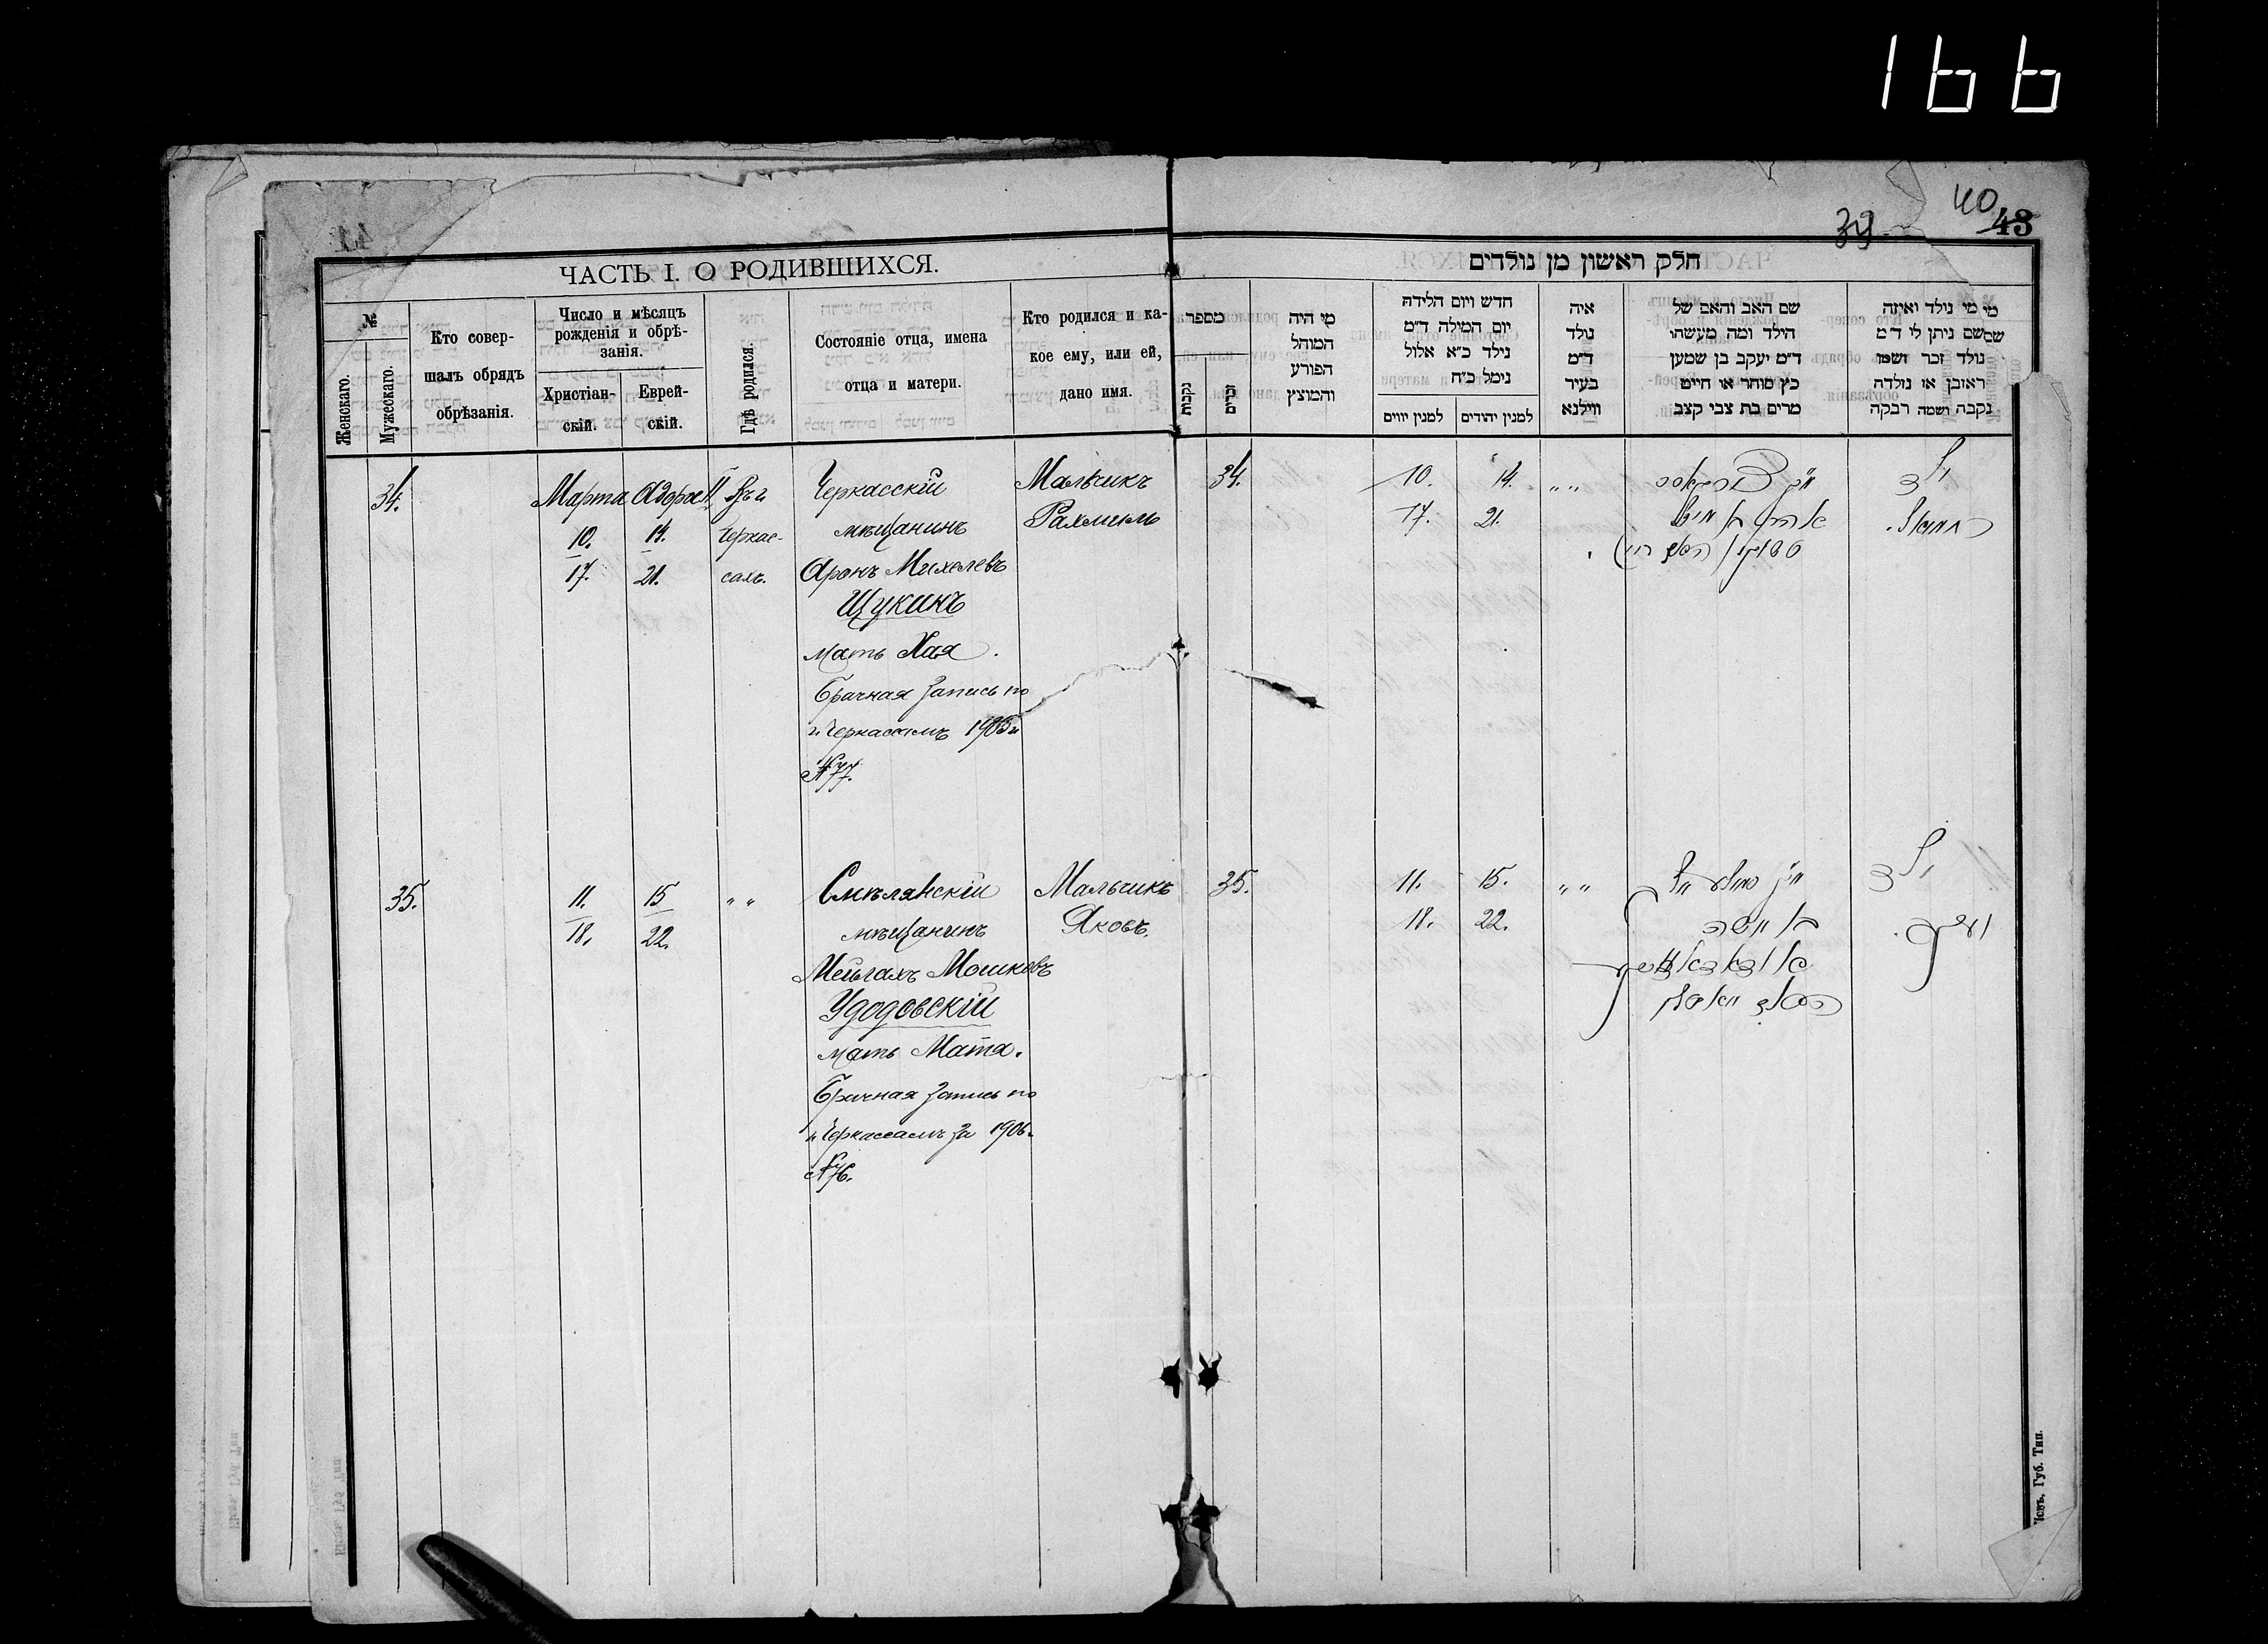 166
39
40
43
ЧАСТЬ I. О РОДИВШИХСЯ.
№
Женскаго.
Мужескаго.
Кто совер-
шалъ обрядъ
обрѣзанія.
Число и мѣсяцъ
рожденія и обрѣ-
занія.
Христіан-
скій.
Еврей-
скій.
Гдѣ родился.
Состояніе отца, имена
отца и матери.
Кто родился и ка-
кое ему, или ей,
дано имя.
34.
Марта
10.
17.
Адора II
14.
21.
Въ г.
Черкас-
сахъ.
Черкасскій
мѣщанинъ
Аронъ Михелевъ
Щукинъ
мать Хая.
Брачная запись по
г. Черкассамъ
№ 77.
Мальчикъ
Рахмиль
35.
11.
18.
15
22.
" "
Смѣлянскій
мѣщанинъ
Мошковъ
Удодовскій
мать Мата.
Брачная запись по
г. Черкассамъ за 1906 г.
№ 76.
Мальчикъ
Яковъ.
חלק ראשון מן נולדים
מספר
נקבות
זכרים
מי היה
המוהל
הפורע
והמוצץ
חדש ויום הלידה
יום המילה ד״מ
נילד כ״א אלול
נימל כ״ח
למנין יווים
למנין יהודים
איה
נולד
ד״מ
בעיר
ווילנא
שם האב והאם של
הילד ומה מעשהו
ד״מ יעקב בן שמעון
כץ סוחר או חייט
מרים בת צבי קצב
מי מי נולד ואיזה
שם ניתן לו ד״מ
נולד זכר ושמו
ראובן או נולדה
נקבה ושמה רבקה
34.
10.
17.
14.
21.
" "
ילד
35.
11.
18.
15.
22.
" "
ילד
Кіевъ, Губ. Тип.